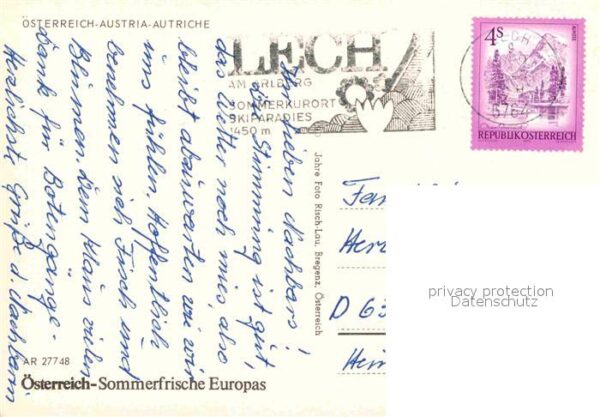 ÖSTERREICH-AUSTRIA-AUTRICHE
LECH
AM ARLBERG
SOMMERKURORT
SKIPARADIES
1450 m
LECH
6764
4S
REPUBLIK ÖSTERREICH
lieben Nachbars!
Stimmung ist gut,
das Wetter noch mies, also
bleibt abzuwarten wie wir
uns fühlen. Hoffentlich
benehmen sich Fisch und
Blumen. Dem Klaus vielen
Dank für Botengänge.
Herzlichste Grüße d. Nachbarn
Jahre Foto Risch-Lau, Bregenz, Österreich
Fam
Her
D 63
privacy protection
Datenschutz
AR 27748
Österreich-Sommerfrische Europas